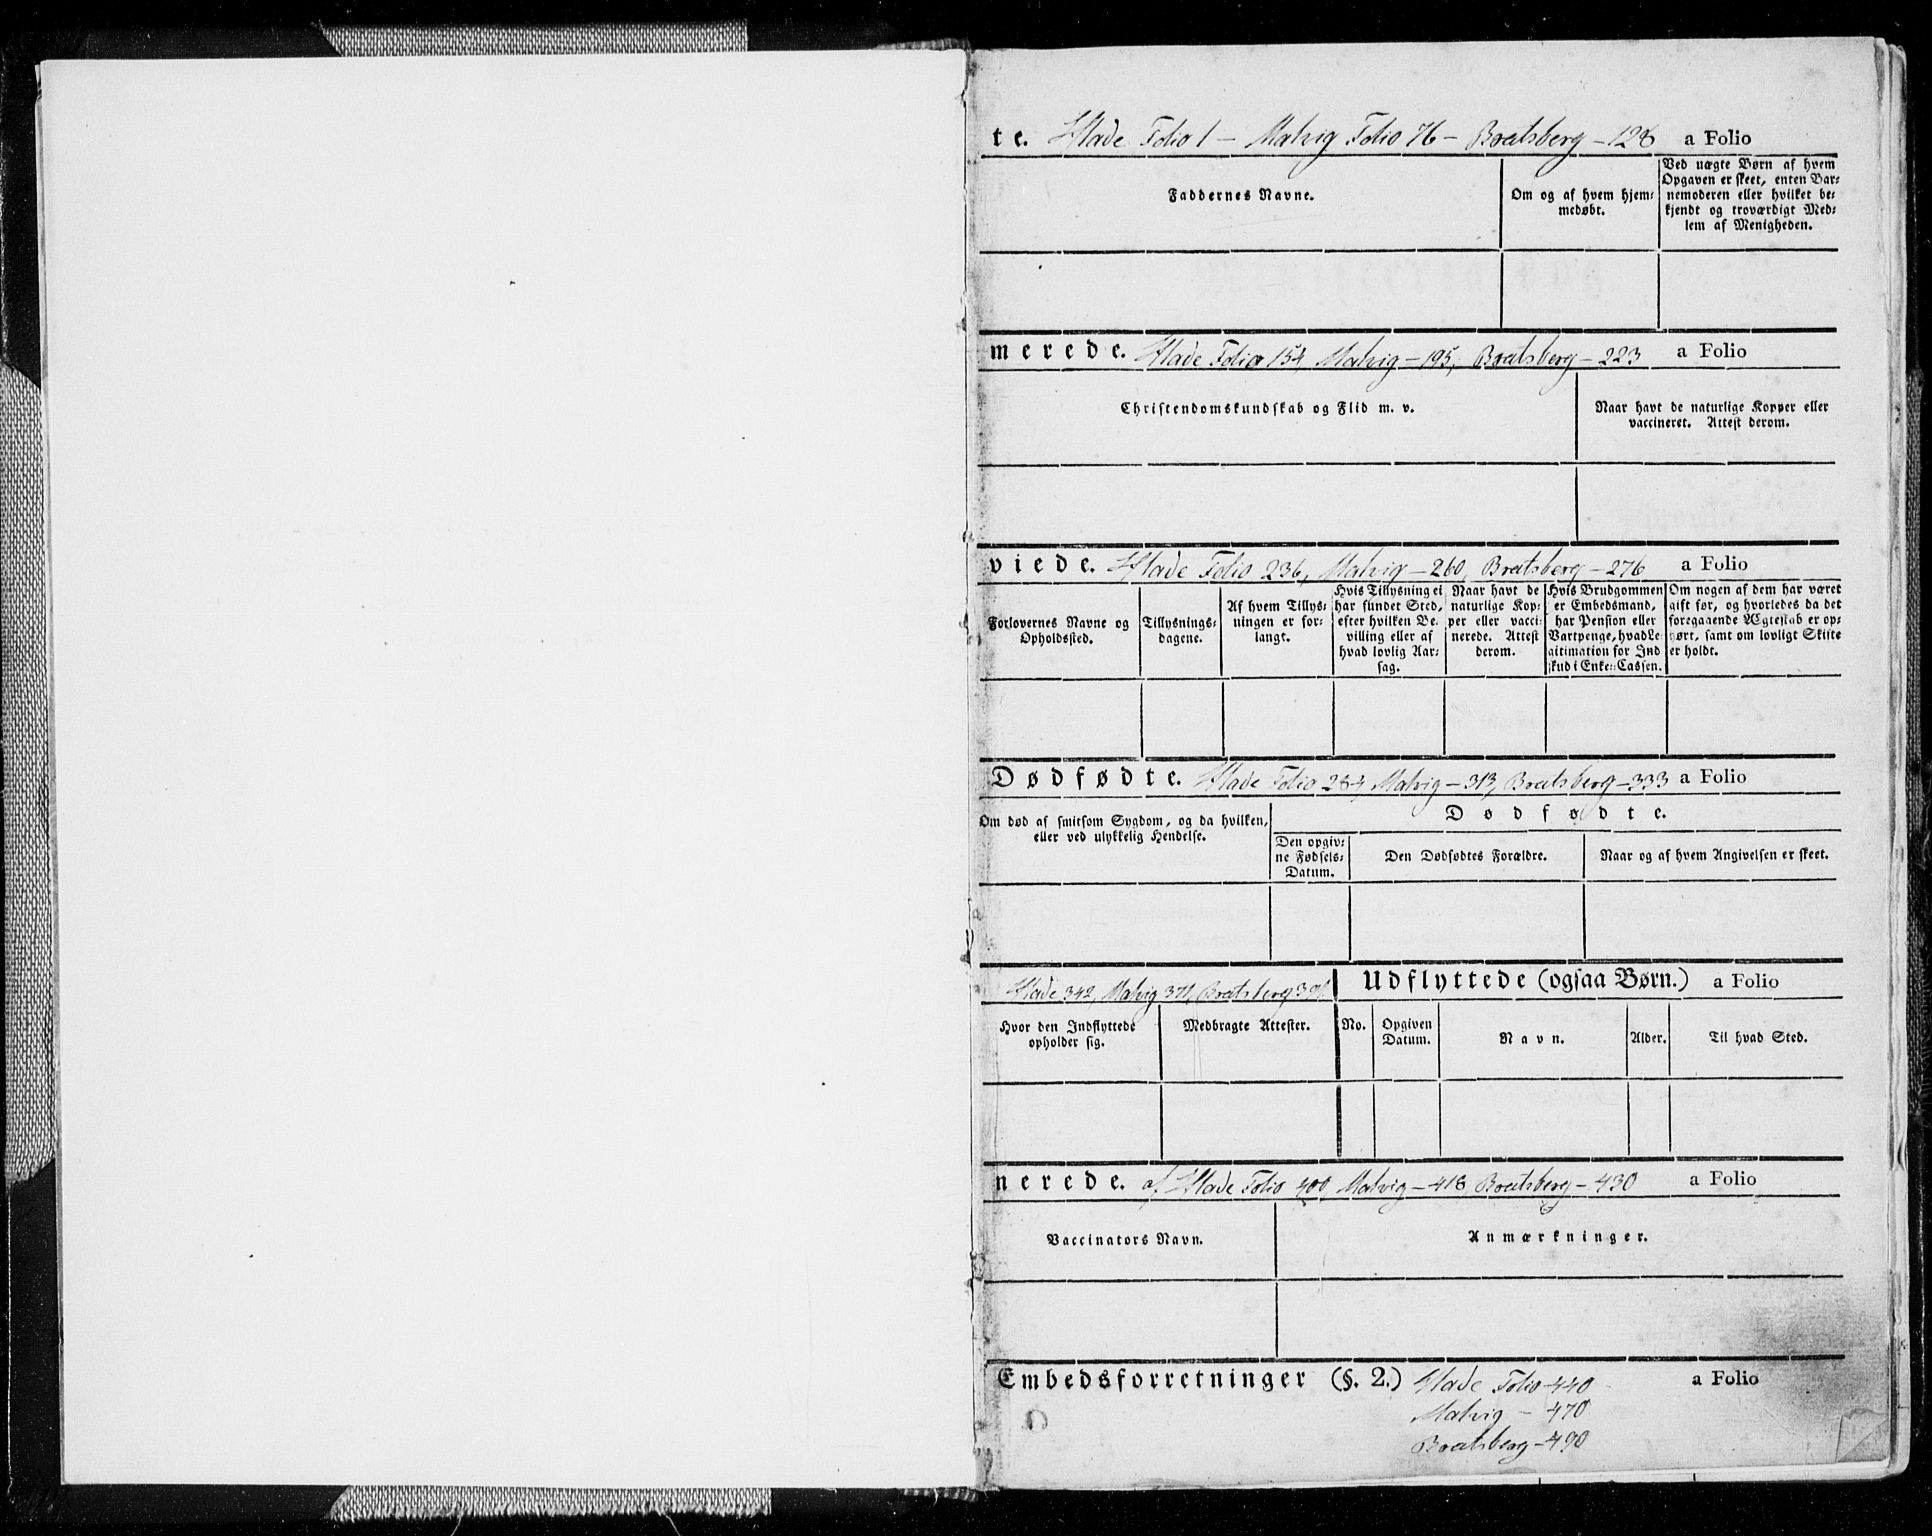 te. Hlade Folio 1 – Malvig Folio 76 – Bratsberg – 128 a Folio
Faddernes Navne.
Om og af hvem hjem=
medøbt.
Ved uægte Børn af hvem
Opgaven er skeet, enten Bar=
nemoderen eller hvilket be=
kjendt og troværdigt Med=
lem af Menigheden.
merede. Hlade Folio 154, Malvig – 195, Bratsberg – 223 a Folio
Christendomskundskab og Flid m. v.
Naar havt de naturlige Kopper eller
vaccineret. Attest derom.
viede. Hlade Folio 236, Malvig – 260, Bratsberg – 276 a Folio
Forlovernes Navne og
Opholdssted.
Tillysnings=
dagene.
Af hvem Tillys=
ningen er for=
langt.
Hvis Tillysning ei
har fundet Sted,
efter hvilken Be=
villing eller af
hvad lovlig Aar=
sag.
Naar havt de
naturlige Kop=
per eller vacci=
nerede. Attest
derom.
Hvis Brudgommen
er Embedsmand,
har Pension eller
Vartpenge, hvad Le=
gitimation for Ind
skud i Enke=Cassen.
Om nogen af dem har været
gift før, og hvorledes da det
foregaaende Ægteskab er op=
hørt, samt om lovligt Skifte
er holdt.
Dødfødte. Hlade Folio 284, Malvig – 313, Bratsberg – 333 a Folio
Om død af smitsom Sygdom, og da hvilken,
eller ved ulykkelig Hendelse.
Dødfødte.
Den opgiv=
ne Fødsels=
Datum.
Den Dødfødtes Forældre.
Naar og af hvem Angivelsen er skeet.
Hlade 342, Malvig 371, Bratsberg Udflyttede (ogsaa Børn.) a Folio
Hvor den Indflyttede
opholder sig.
Medbragte Attester.
No.
Opgiven
Datum.
Navn.
Alder.
Til hvad Sted.
nerede. af Hlade Folio 400, Malvig – 418, Bratsberg – 430 a Folio
Vaccinators Navn.
Anmærkninger.
Embedsforretninger (§. 2.) Hlade Folio 440 a Folio
Malvig – 470
Bratsberg – 490